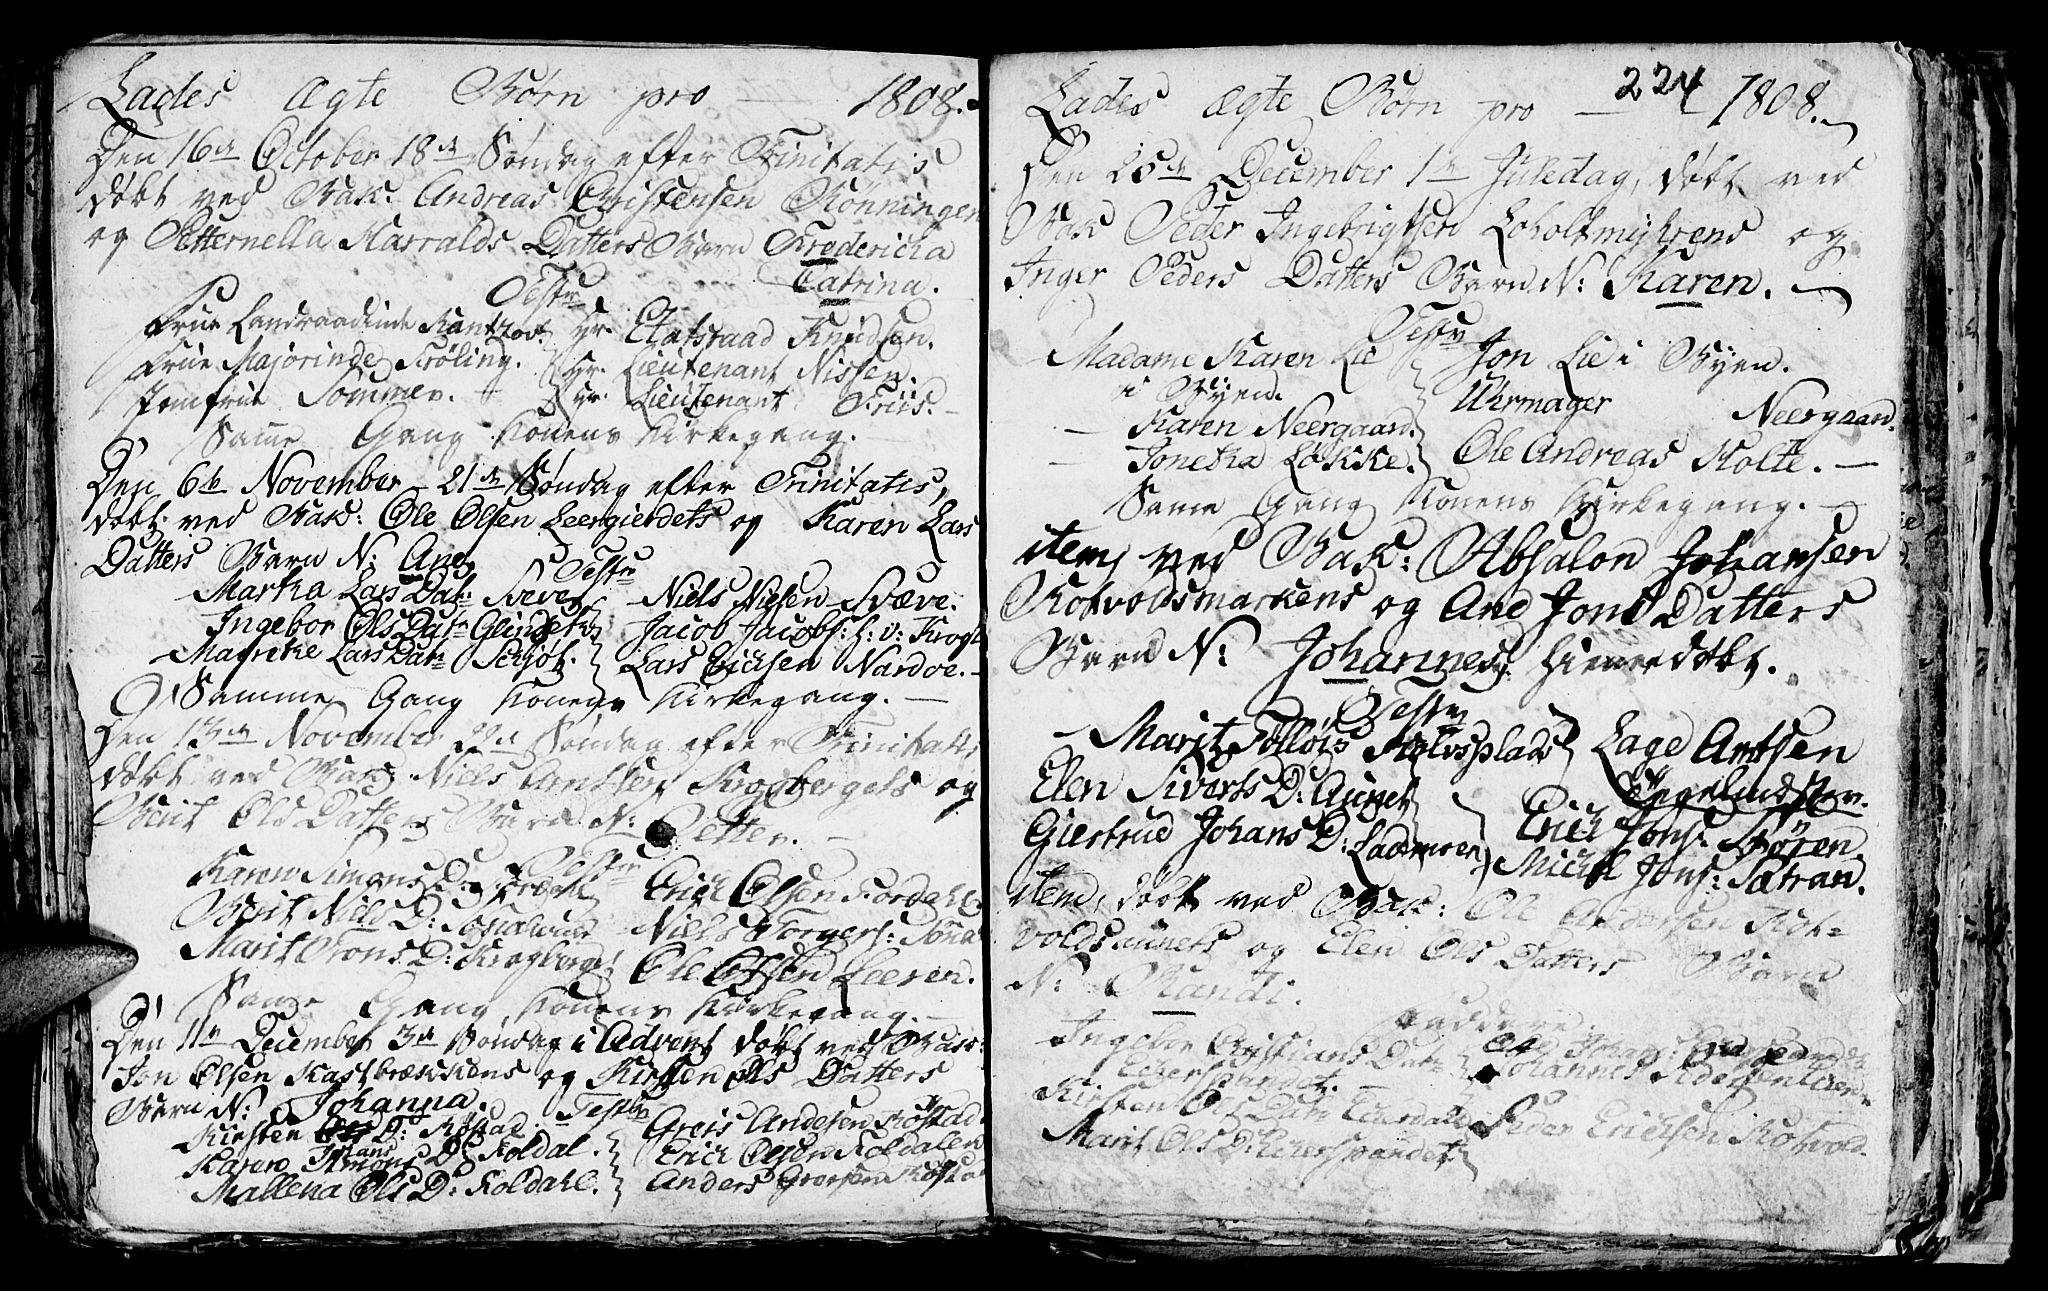 Lades ægte Børn pro — 1808.
Den 16de October 18de Søndag efter Trinitatis
døbt ved Bak: Andreas Christensen Rønningen
og Petternella Harralds Datters Barn Fredericha
Catrina.
Testes
Frue Landraadinde Rantzov. Hr. Etatsraad Knudsen.
Frue Majorinde Frøling. Hr. Lieutenant Nissen.
Jomfrue Sommer. Hr. Lieutenant Friis.
Samme Gang Konens Kirkegang.
Den 6te November 21de Søndag efter Trinitatis,
døbt ved Bak: Ole Olsen Leergierdets og Karen Lars
Datters Barn N: Ane
Testes
Martha Lars Dat: Niels Nielsen
Ingebor Ols Datr Jacob Jacobs:
Marithe Lars Datr Schjøt. Lars Erichsen Nardoe.
Samme Gang Konens Kirkegang.
Den 13de November 22de Søndag efter Trinitatis,
døbt ved Bak: Niels Arntsen Krogbergets og
Berit Ols Datters Barn N: Petter.
Testes
Karen Simons D: Erich Olsen
Berit Niels D: Niels Torgers:
Marit Trons D: Krogberget Ole Olsen Leeren.
Samme Gang Konens Kirkegang.
Den 11te December 3de Søndag i Advent døbt ved Bak:
Jon Olsen Kastbrækkens og Kirsten Ols Datters
Barn N: Johanna.
Testes
Kirsten Ols D: Røstad. Greis Andersen Røstad
Karen Hans D: Koldal. Erich Olsen Koldalen
Mallena Ols D: Koldahl. Anders Greisen Røstad
224
Lades ægte Børn pro — 1808.
Den 25de December 1ste Juledag, døbt ved
Bak Peder Ingebrigtsen Loholtmyhrens og
Inger Peders Datters Barn N: Karen.
Testes
Madame Karen Lie Jon Lie i Byen.
i Byen. Uhrmager Neergaard.
Karen Neergaard.
Jonetha Løkke. Ole Andreas Holte.
Same Gang Konens Kirkegang.
item, ved Bak: Absalon Johansen
Rotvoldsmarkens og Ane Jons Datters
Barn N: Johannes, hiemmedøbt.
Testes
Marit Lage Arntsen
Elen Siverts D: Engelmdsten.
Giertrud Johans D: Lademoen Erich Jons: Støren.
Michel Jons: Sætran.
item, døbt ved Bak: Ole Andersen Rot-
voldsaunets og Elen Ols Datters Barn
N: Randi.
Faddere
Ingebor Christians Datr
Kirsten Ols Datr Johannes
Marit Ols D: Peder Erichsen Rotvold.